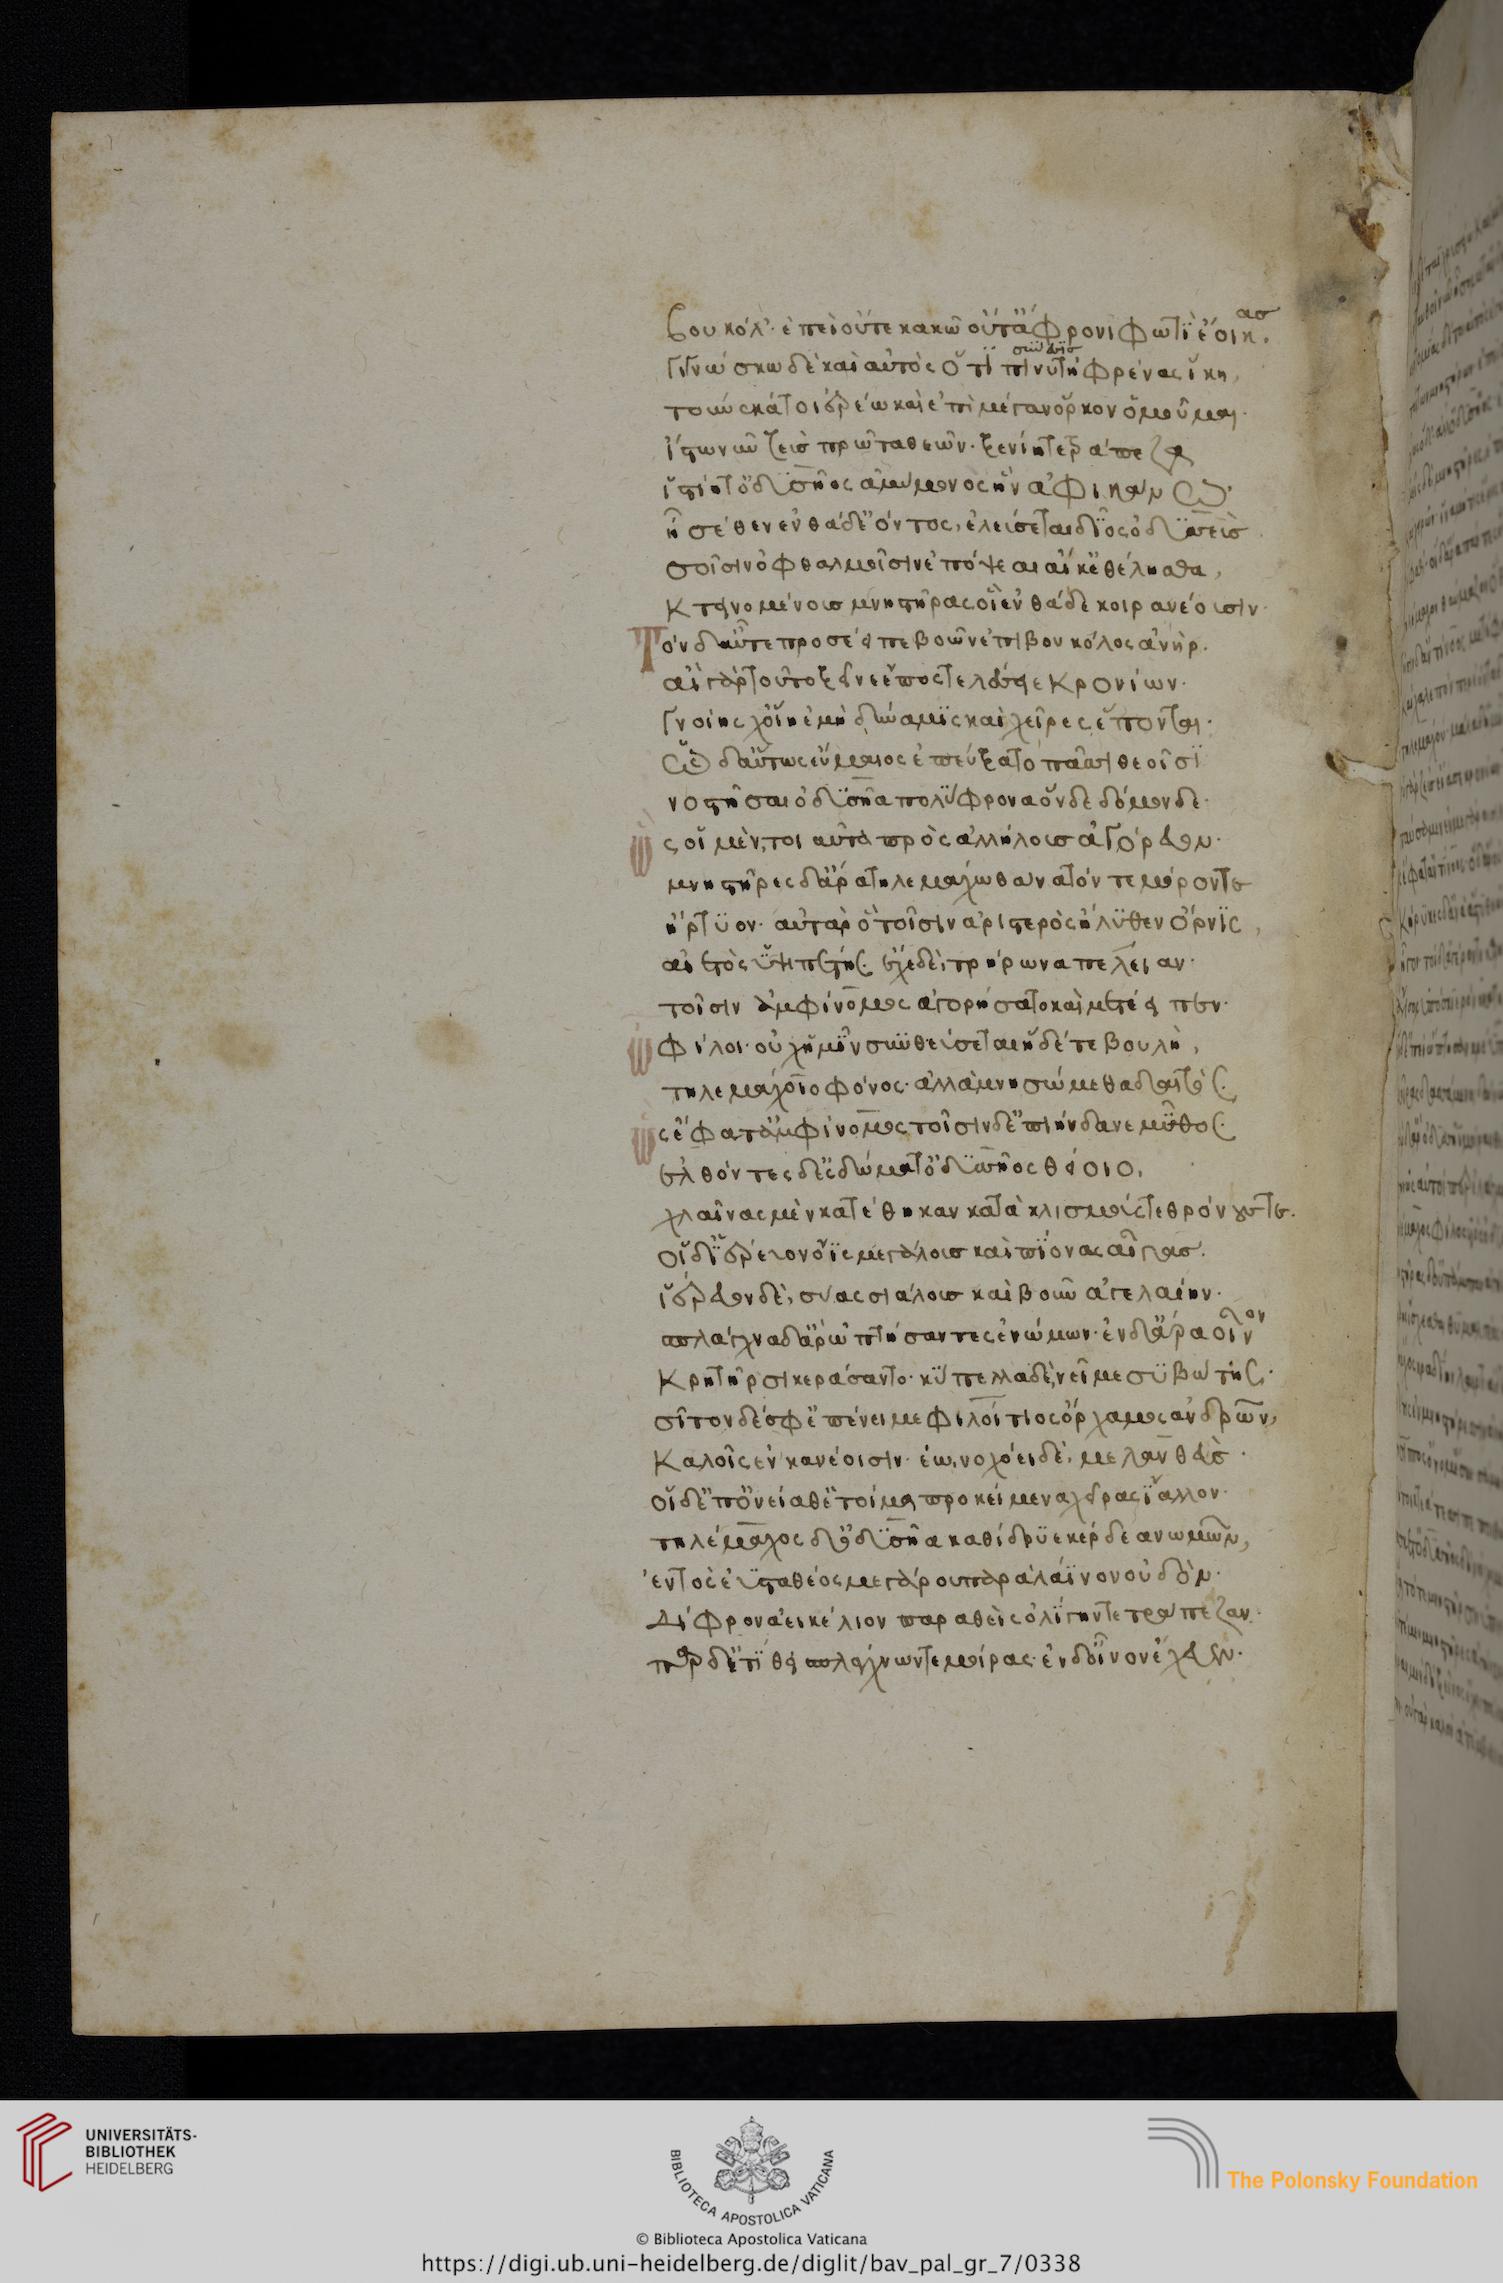 βουκόλ' ἐπεὶ οὔτε κακῶ οὔτ' ἄφρονι φωτὶ ἔοικας.
γιγνώσκω δὲ καὶ αὐτὸς ὅτι πινυτὴ φρένας ἵκη,
τοὔνεκά τοι ἐρέω καὶ ἐπὶ μέγαν ὅρκον ὀμοῦμαι.
ἴστω νῦν ζεὺς πρῶτα θεῶν. ξενίη τε τράπεζα
ἱστίη τ' ὀδυσῆος ἀμύμονος ἣν ἀφικάνω.
ἦ σέθεν ἐνθάδ' ἐόντος, ἐλεύσεται δῖος ὀδυσσεὺς
σοῖσιν ὀφθαλμοῖσιν ἐπόψεαι αἴ κ' ἐθέλησθα,
κτεινομένους μνηστῆρας οἳ ἐνθάδε κοιρανέουσιν.
Τὸν δ' αὖτε προσέειπε βοῶν ἐπιβουκόλος ἀνήρ.
αἲ γὰρ τοῦτο ξεῖνε ἔπος τελέσειε κρονίων.
γνοίης χ' οἵη ἐμὴ δύναμις καὶ χεῖρες ἕπονται.
ὣς δ' αὔτως εὔμαιος ἐπεύξατο πᾶσι θεοῖσι
νοστῆσαι ὀδυσῆα πολύφρονα ὅνδε δόμονδε.
Ὣς οἱ μέν, τοι αῦτα πρὸς ἀλλήλους ἀγόρευον.
μνηστῆρες δ' ἄρα τηλεμάχω θάνατόν τε μόρον τε
ἤρτυον. αὐτὰρ ὁ τοῖσιν ἀριστερὸς ἤλυθεν ὄρνις,
αἰετὸς ὑψιπέτης. ἔχε δὲ, τρήρωνα πέλειαν.
τοῖσιν δ' ἀμφίνομος ἀγορήσατο καὶ μετέειπεν.
Ὦ φίλοι. οὐχ ἡμῖν συνθεύσεται ἥδέ γε βουλὴ,
τηλεμάχοιο φόνος. ἀλλὰ μνησώμεθα δαιτός.
Ὣς ἔφατ' ἀμφίνομος τοῖσιν δ' ἐπιήνδανε μῦθος.
ἐλθόντες δ' ἐς δώματ' ὀδυσσῆος θείοιο,
χλαίνας μὲν κατέθηκαν κατὰ κλισμούς τε θρόνους τε.
οἱ δ' ἱέρευον ὄϊς μεγάλους καὶ πίονας αἶγας.
ἵρευον δὲ, σύας σιάλους καὶ βοῦν ἀγελαίην.
σπλάγχνα δ' ἄρ' ὠπτήσαντες ἐνώμων. ἐν δ' ἄρα οἶνον
κρητῆρσι κεράσαντο. κύπελλα δὲ, νεῖμε συβώτης.
σῖτον δέ σφ' ἐπένειμε φιλοίτιος ὄρχαμος ἀνδρῶν,
καλοῖς ἐν κανέοισιν. ἐωνοχόει δὲ, μελανθεύς.
οἱ δ' ἐπ' ὀνείαθ' ἑτοῖμα προκείμενα χεῖρας ἴαλλον.
τηλέμαχος δ' ὀδυσῆα καθίδρυε κέρδεα νωμῶν,
ἐντὸς ἐϋσταθέος μεγάρου παρὰ λάϊνον οὐδόν.
δίφρον ἀεικέλιον παραθεὶς ὀλίγην τε τράπεζαν.
πὰρ δ' ἐτίθει σπλάγχνων τε μοίρας. ἐν δ' οἶνον ἔχευεν.
UNIVERSITÄTS-
BIBLIOTHEK
HEIDELBERG
BIBLIOTECA APOSTOLICA VATICANA
© Biblioteca Apostolica Vaticana
The Polonsky Foundation
https://digi.ub.uni-heidelberg.de/diglit/bav_pal_gr_7/0338